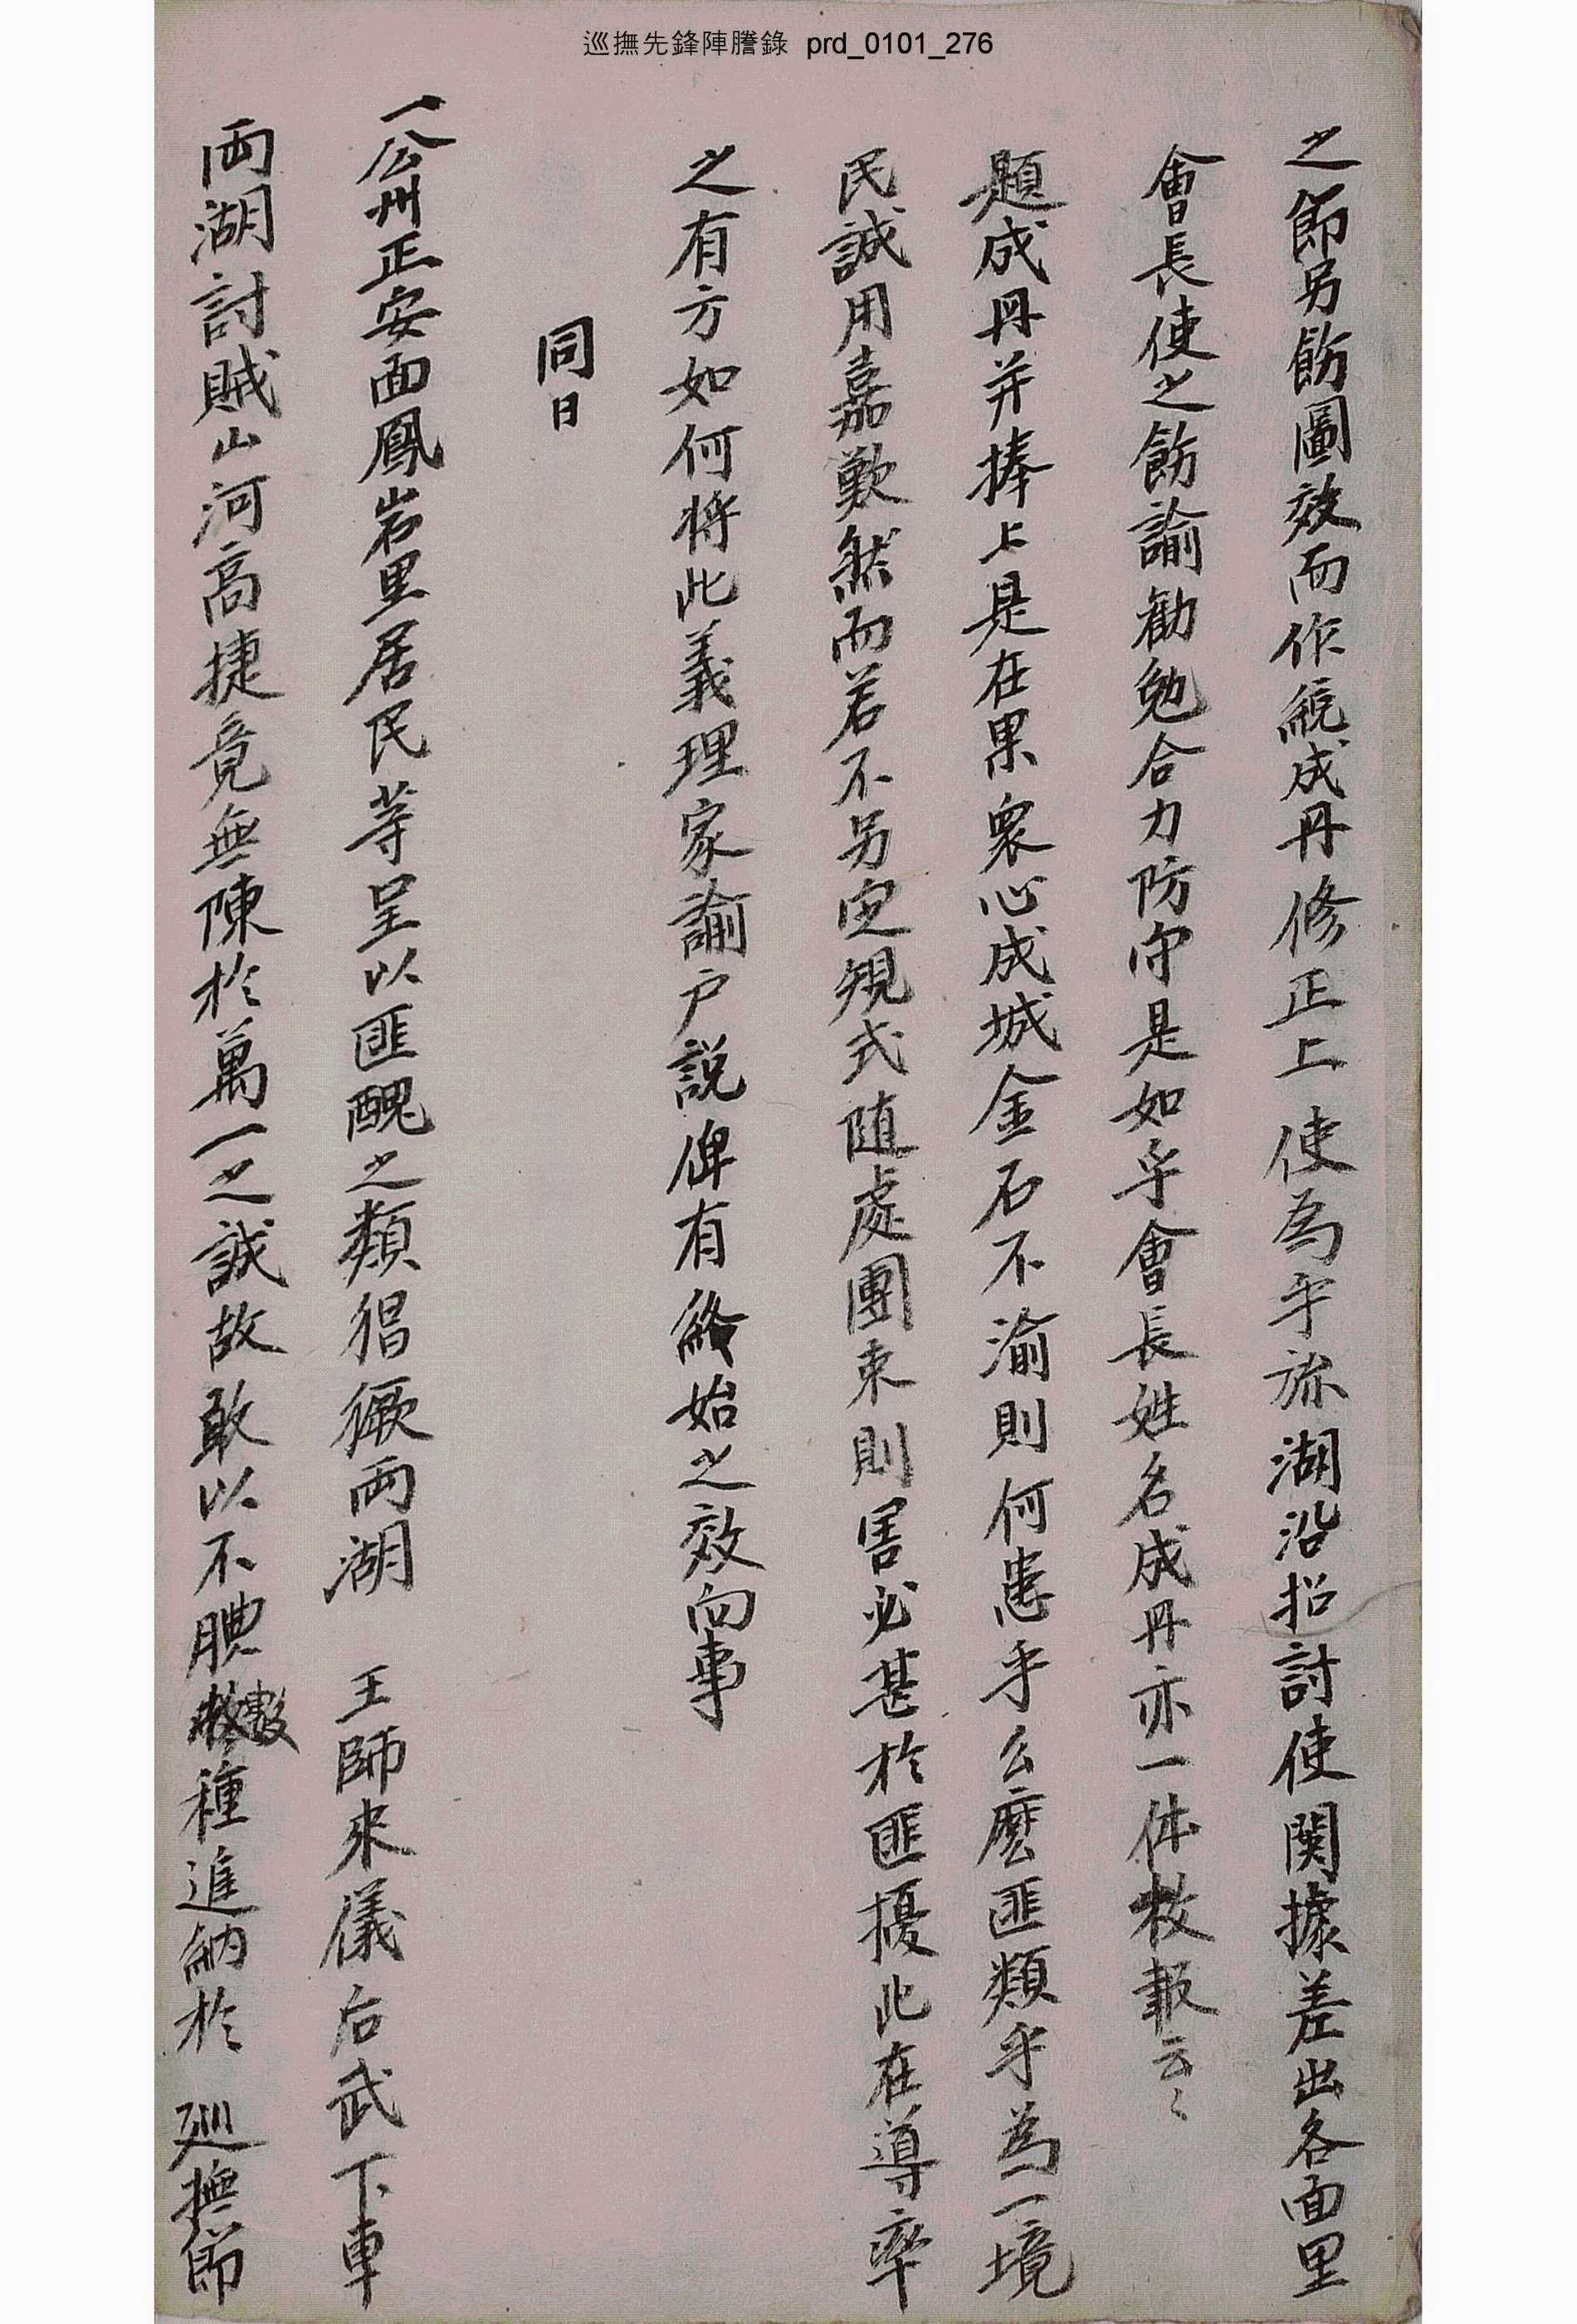 巡撫先鋒陣謄錄 prd_0101_276
之節另飭圖效而作統成冊修正上使爲乎旀湖沿招討使関據差出各面里
會長使之飭諭勸勉合力防守是如乎會長姓名成冊亦一件枚報云〻
題成冊并捧上是在果衆心成城金石不渝則何患乎么麽匪類乎爲一境
民誠用嘉歎然而若不另定規式随處團束則害必甚於匪擾此在導率
之有方如何將此義理家諭户説俾有終始之效向事
同日
一公州正安面鳳岩里居民等呈以匪醜之類猖獗両湖 王師來儀后武下車
両湖討賊山河高捷竟無陳於萬一之誠故敢以不腆數種進納於 廵撫節